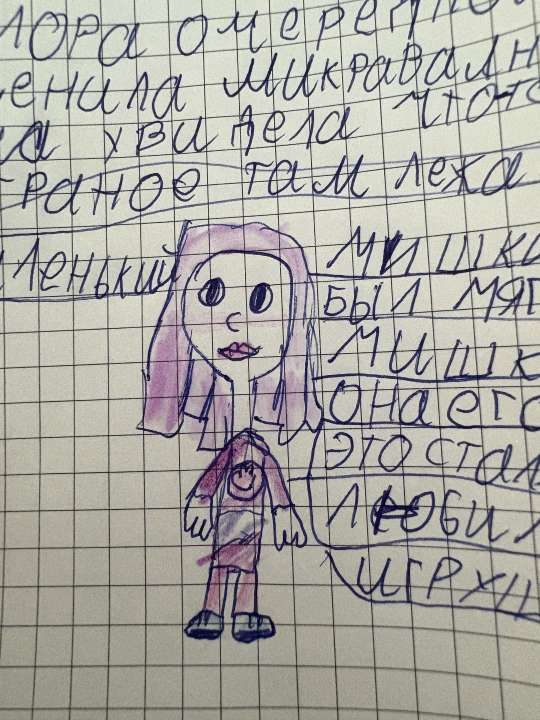 ЛОРА ОЧЕРЕДНО
ЕНИЛА МИКРАВАЛН
ЛА УВИДЕЛА ЧТОТО
ТРАНОЕ ТАМ ЛЕЖА
ЛЕНЬКИЙ МИШКИ
БЫЛ МЯГ
МИШК
ОНА ЕГО
ЭТО СТАЛ
ЛЮБИ
ИГРУ